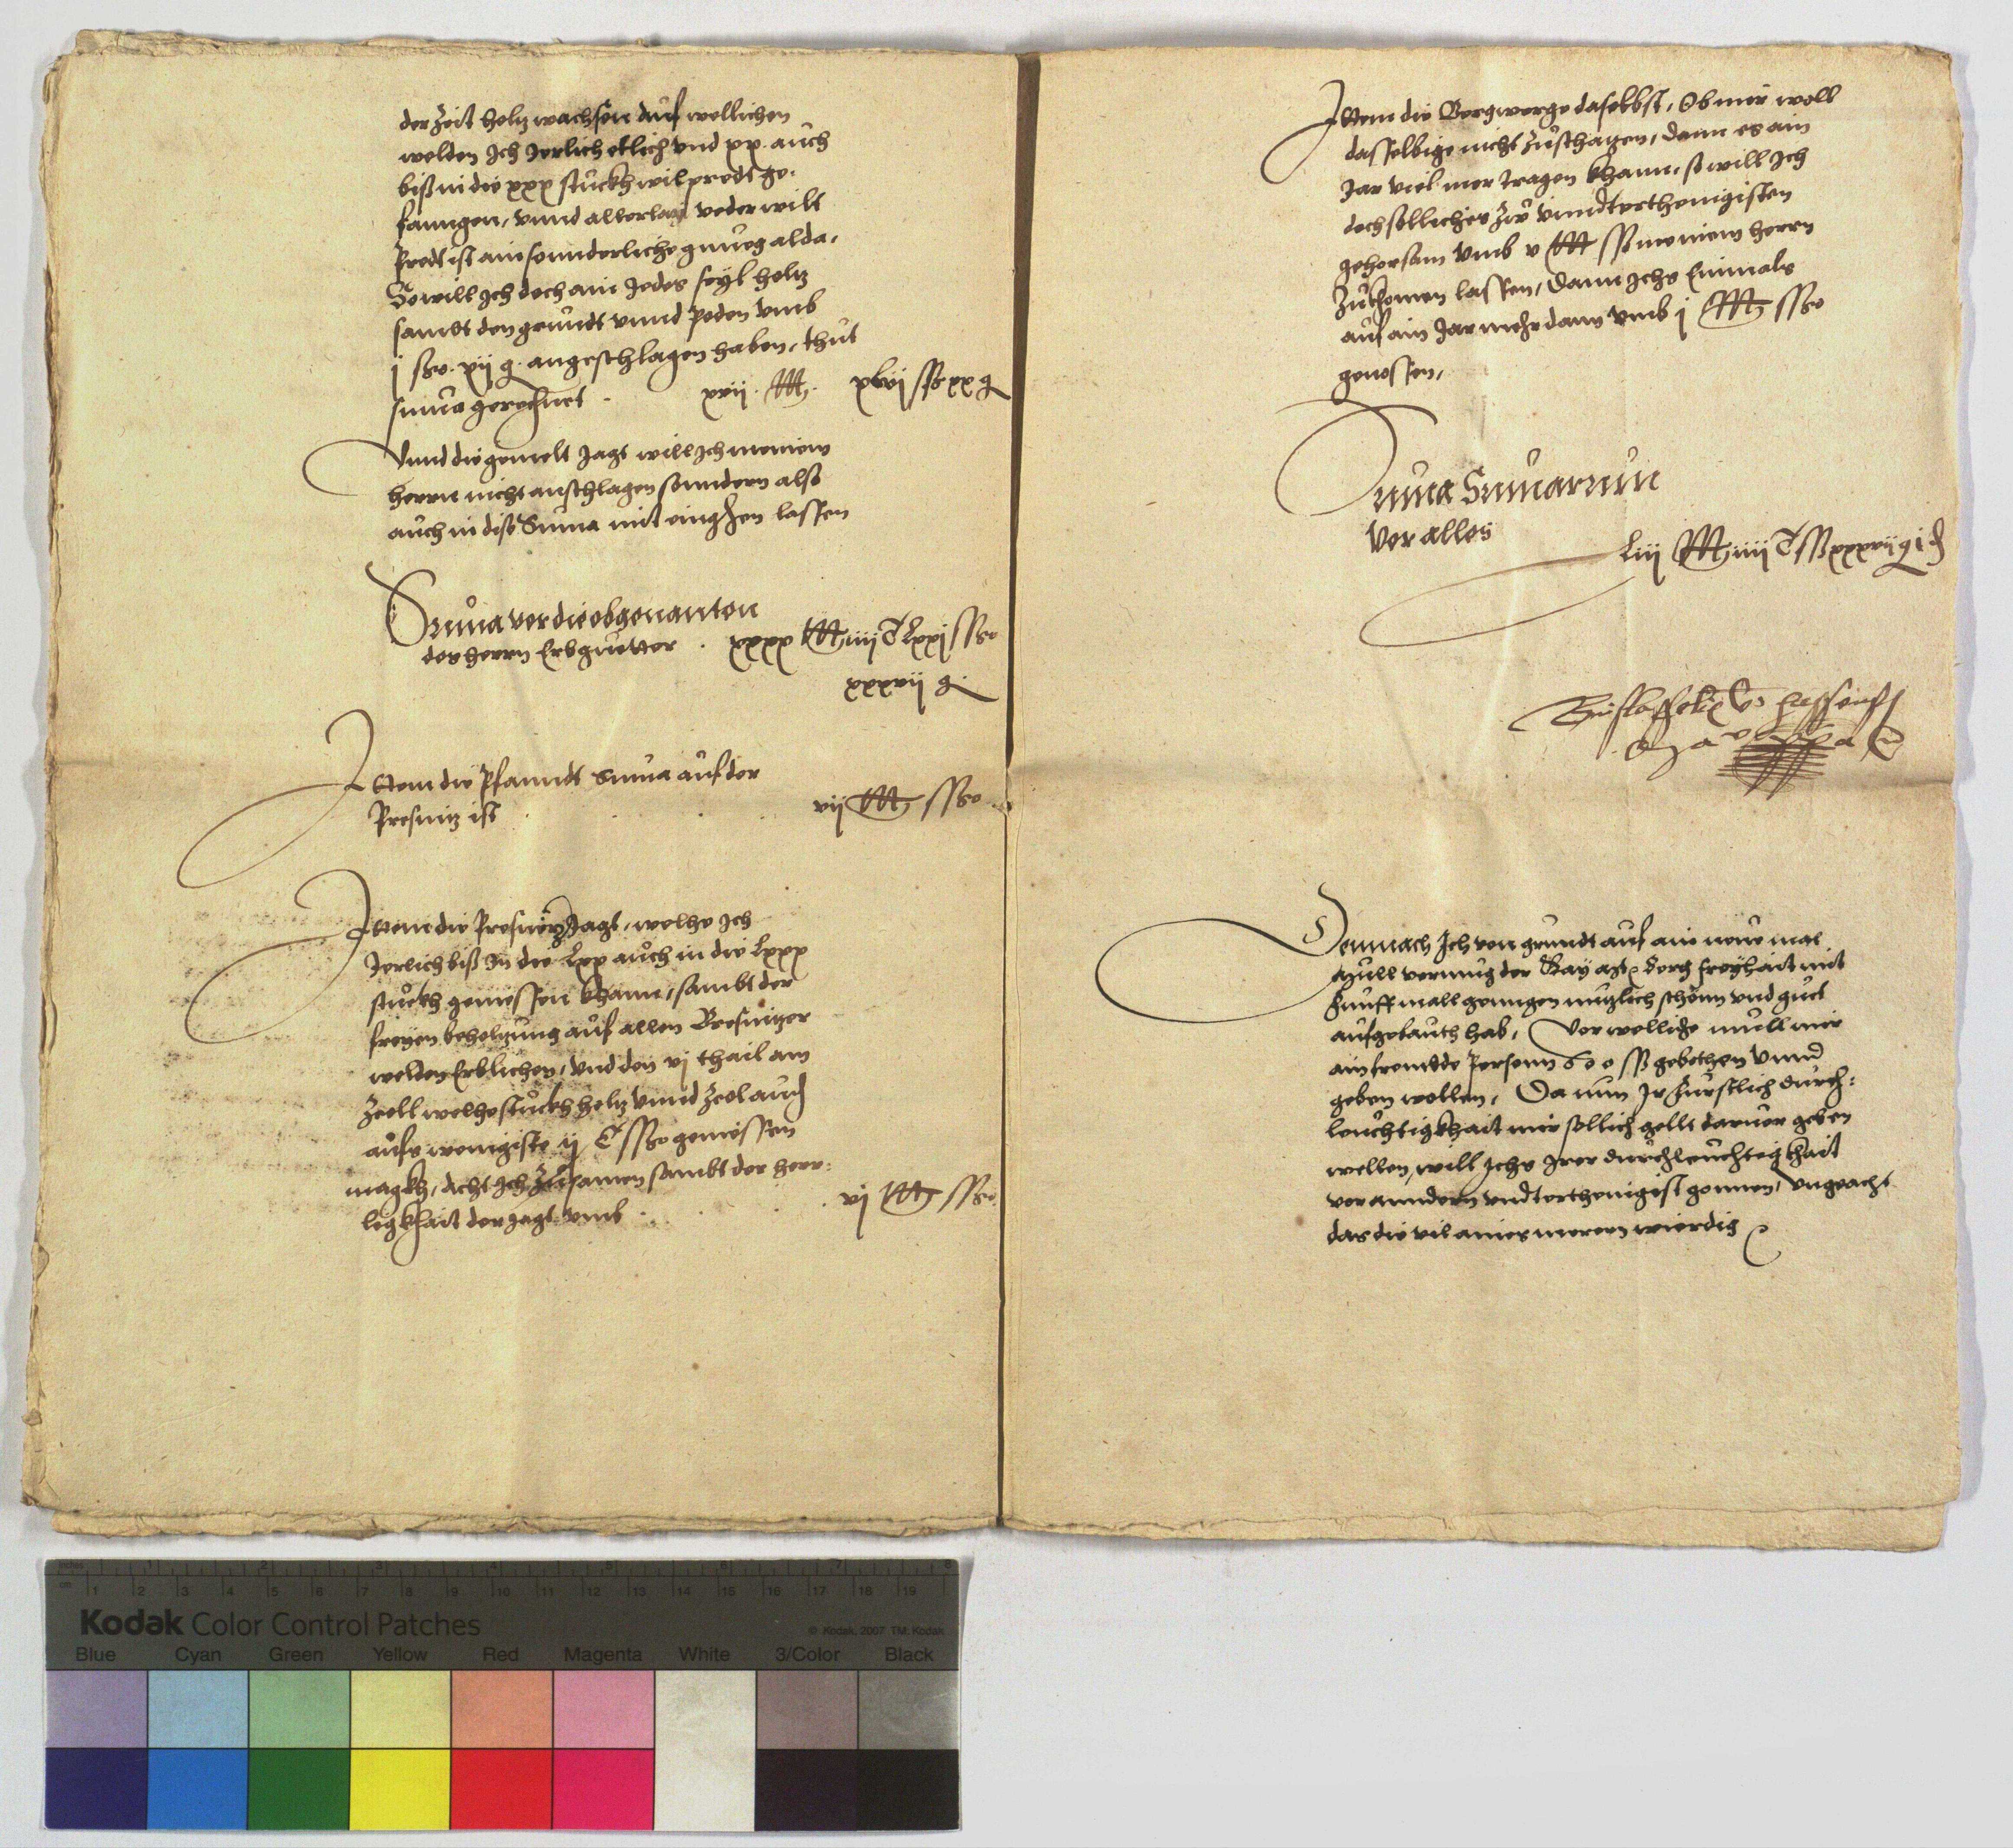 der Zeit holtz wachsen auf wellichen
welden Ich Jerlich etlich vnd xx. auch
biß in die xxx stuckh wilpredt ge-
fanngen, vnnd allerlay veder wilt
Predt ist ain sonnderliche gnueg alda,
So will Ich doch ain Jedes seyl holtz
sambt den grundt vnnd poden vmb
j sso. xij g. angeschlagen haben, thut
suma gerechnet . xvij. M. xlvj sso xx g
Vnnd die gemelt Jagt will Ich meinem
herrn nicht anschlagen sonndern also
auch in dise Suma mit eingehen lassen
Suma vor die obgenanten
des herrn Erbguetter . xxxx M iiij C lxxj sso
xxxvij g.
Ittem die Pfanndt Suma auf der
Presnitz ist . . . vij M sso
Ittem die Presnitz Jagt, welche Ich
Jerlich biß In die lxx auch in die lxxx
stuckh geniessen khann, sambt der
freyen beholtzung auf allen Bresnitzer
welden Erblichen, vnd den vj thail am
Zeoll welche stuckh holtz vnnd Zeol auch
aufs wenigiste ij C sso geniessen
magkh, Acht Ich Zusamen sambt der herr-
ligkhait der Jagt vmb . . . vj M sso
Ittem die Bergwerge daselbst, Ob mir woll
dasselbige nicht Zuschlagen, dann es ain
Jar viel mer tragen khann, so will Ich
doch solliches Zw vnndterthenigisten
gehorsam vmb v M sso meinem herrn
Zukhomen lassen, dann Ichs Einmals
auf ain Jar mehr dann vmb j M sso
genossen,
Suma Sumarum
vor alles
liij M iiij C sso xxxvij g j d
Demnach Ich von grundt auf ain neue mal
Mull vermug der Kay Mt Berg freyhait mit
Funff mall gengen nutzlich schonn vnd guet
aufgebauth hab, Vor welliche mull mir
ain frembde Person 600 ss gebethen vnnd
geben wollen, Da nun Ir Furstlich durch-
leuchtigkhait mir sollich gellt daruor geben
wellen, will Ichs Irer durchleuchtigkhait
vor anndern vndterthenigist gonnen, vngeacht
das die vil aines merern wierdig